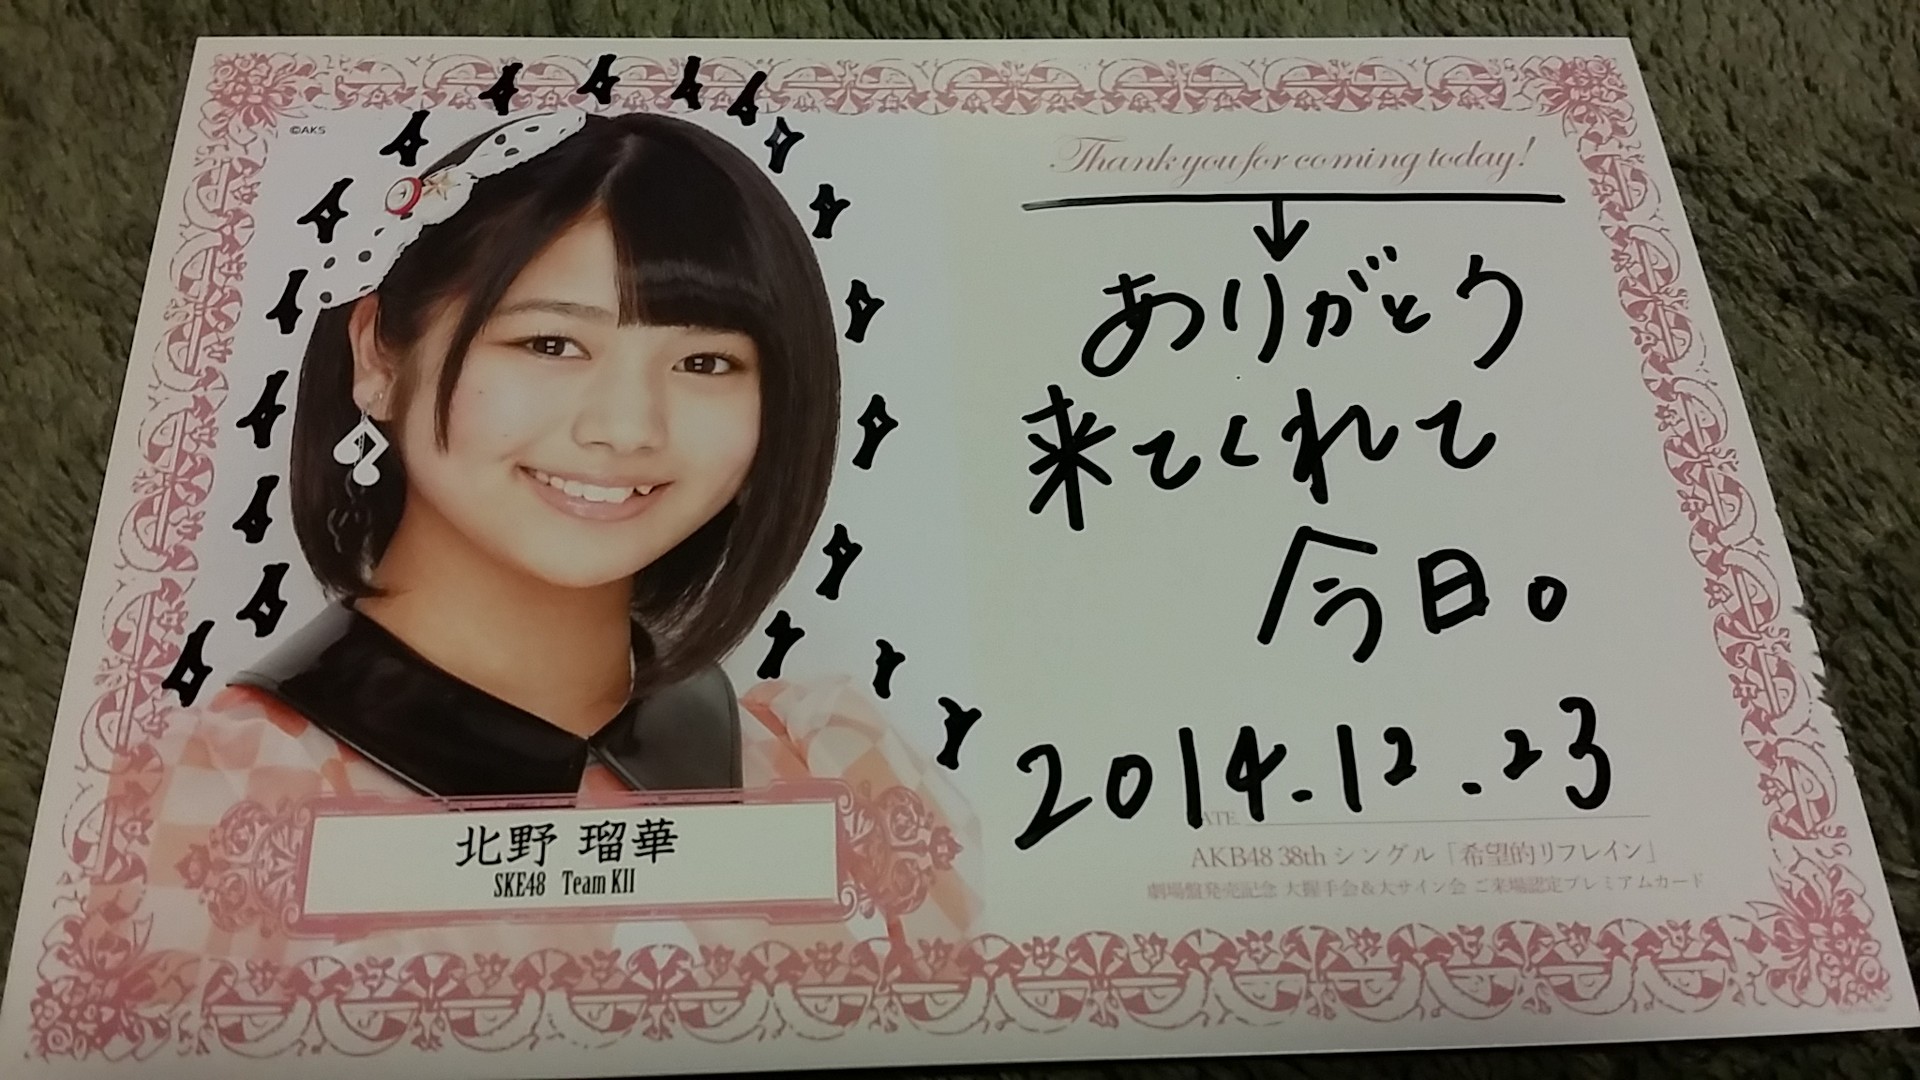 ©AKS
Thank you for coming today!
ありがとう
来てくれて
今日。
2014.12.23
DATE
北野 瑠華
SKE48 Team KII
AKB48 38th シングル「希望的リフレイン」
劇場盤発売記念 大握手会&大サイン会 ご来場認定プレミアムカード